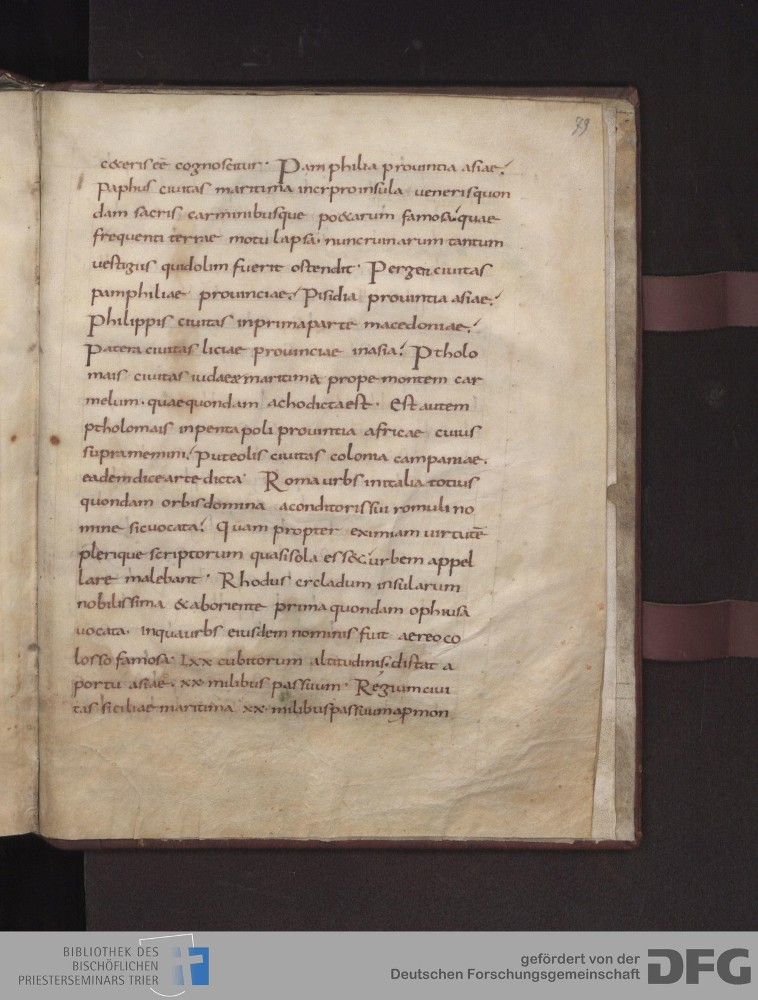 79
c&eris eē cognoscitur. Pamphilia prouintia asiae;
Paphus ciuitas maritima incypro insula uenerisquon
dam sacris carminibusque po&arum famosa quae
frequenti terrae motu lapsa. nuncruinarum tantum
uestigiis quidolim fuerit ostendit. Perge ciuitas
pamphiliae prouinciae; Pisidia prouintia asiae;
Philippis ciuitas inprimaparte macedoniae;
Patera ciuitas liciae prouinciae inasia; Ptholo
mais ciuitas iudaeaemaritima prope montem car
melum. quaequondam achodictaest. Est autem
ptholomais inpentapoli prouintia africae cuius
supramemini; Puteolis ciuitas colonia campaniae.
eademdicearte dicta. Roma urbs initalia totius
quondam orbisdomina aconditorissui romuli no
mine sicuocata; Quam propter eximiam uirtutē
plerique scriptorum quasisola ess& urbem appel
lare malebant. Rhodus cycladum insularum
nobilissima &aboriente prima quondam ophiusa
uocata. inquaurbs eiusdem nominis fuit aereo co
losso famosa. lxx cubitorum altitudinis. distat a
portu asiae. xx. milibus passuum. Regium ciui
tas siciliae maritima xx. milibuspassuum mon
BIBLIOTHEK DES
BISCHÖFLICHEN
PRIESTERSEMINARS TRIER
gefördert von der
Deutschen Forschungsgemeinschaft
DFG